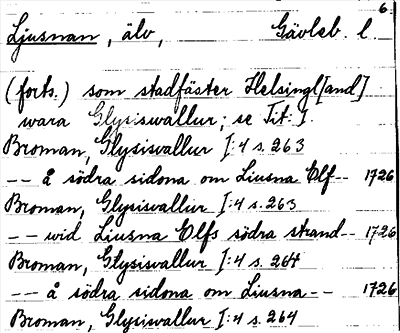 6.
Ljusnan, älv, Gävleb. l.
(forts.) som stadfäster Helsingl[and]
wara Glysiswallur; se Tit: I.
Broman, Glysisvallur I:4 s. 263
-- å södra sidona om Liusna Elf-- 1726
Broman, Glysisvallur I:4 s. 263
-- wid Liusna Elfs södra strand-- 1726
Broman, Glysisvallur I:4 s. 264
-- å södra sidona om Liusna-- 1726
Broman, Glysisvallur I:4 s. 264